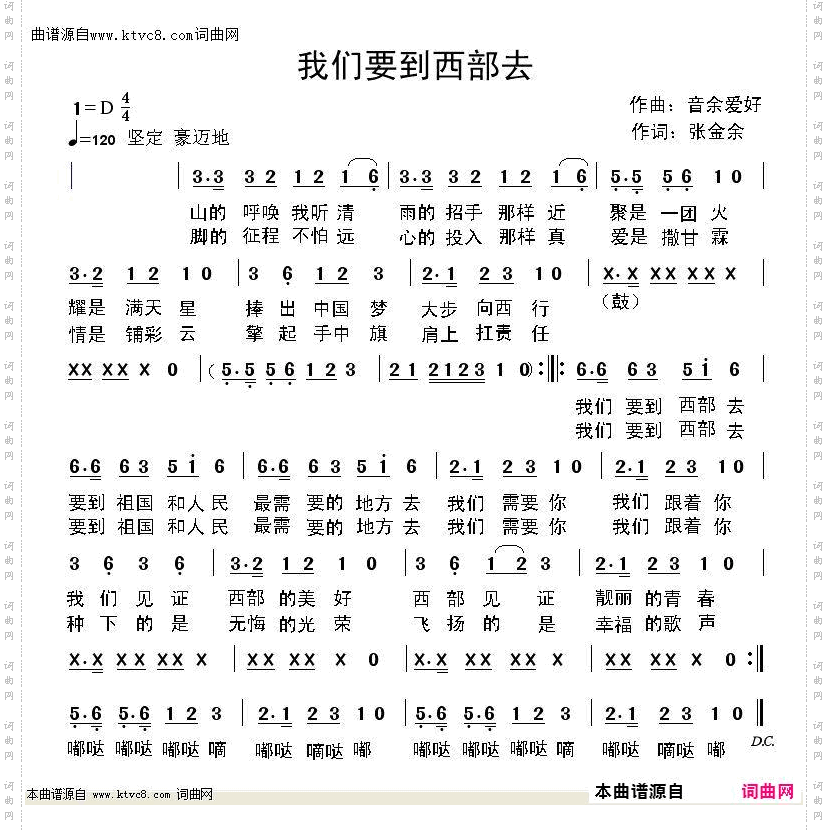 曲谱源自www.ktvc8.com词曲网
我们要到西部去
1=D 4/4
作曲：音余爱好
♩=120 坚定 豪迈地
作词：张金余
3·3 32 12 16 | 3·3 32 12 16 | 5·5 56 10 |
山的 呼唤 我听 清 雨的 招手 那样 近 聚是 一团 火
脚的 征程 不怕 远 心的 投入 那样 真 爱是 撒甘 霖
3·2 12 10 | 3 6 12 3 | 2·1 23 10 | X·X XX XX X |
耀是 满天 星 捧 出 中国 梦 大步 向西 行 （鼓）
情是 铺彩 云 擎 起 手中 旗 肩上 扛责 任
XX XX X 0 | (5·5 56 12 3 | 21 2123 1 0) :||: 6·6 63 5i 6 |
我们 要到 西部 去
我们 要到 西部 去
6·6 63 5i 6 | 6·6 63 5i 6 | 2·1 23 10 | 2·1 23 10 |
要到 祖国 和人 民 最需 要的 地方 去 我们 需要 你 我们 跟着 你
要到 祖国 和人 民 最需 要的 地方 去 我们 需要 你 我们 跟着 你
3 6 3 6 | 3·2 12 1 0 | 3 6 12 3 | 2·1 23 10 |
我 们 见 证 西部 的美 好 西 部 见 证 靓丽 的青 春
种 下 的 是 无悔 的光 荣 飞 扬 的 是 幸福 的歌 声
X·X XX XX X | XX XX X 0 | X·X XX XX X | XX XX X 0 :||
5·6 5·6 12 3 | 2·1 23 10 | 5·6 5·6 12 3 | 2·1 23 10 ||
嘟哒 嘟哒 嘟哒 嘀 嘟哒 嘀哒 嘟 嘟哒 嘟哒 嘟哒 嘀 嘟哒 嘀哒 嘟 D.C.
本曲谱源自 www.ktvc8.com 词曲网
本曲谱源自 词曲网